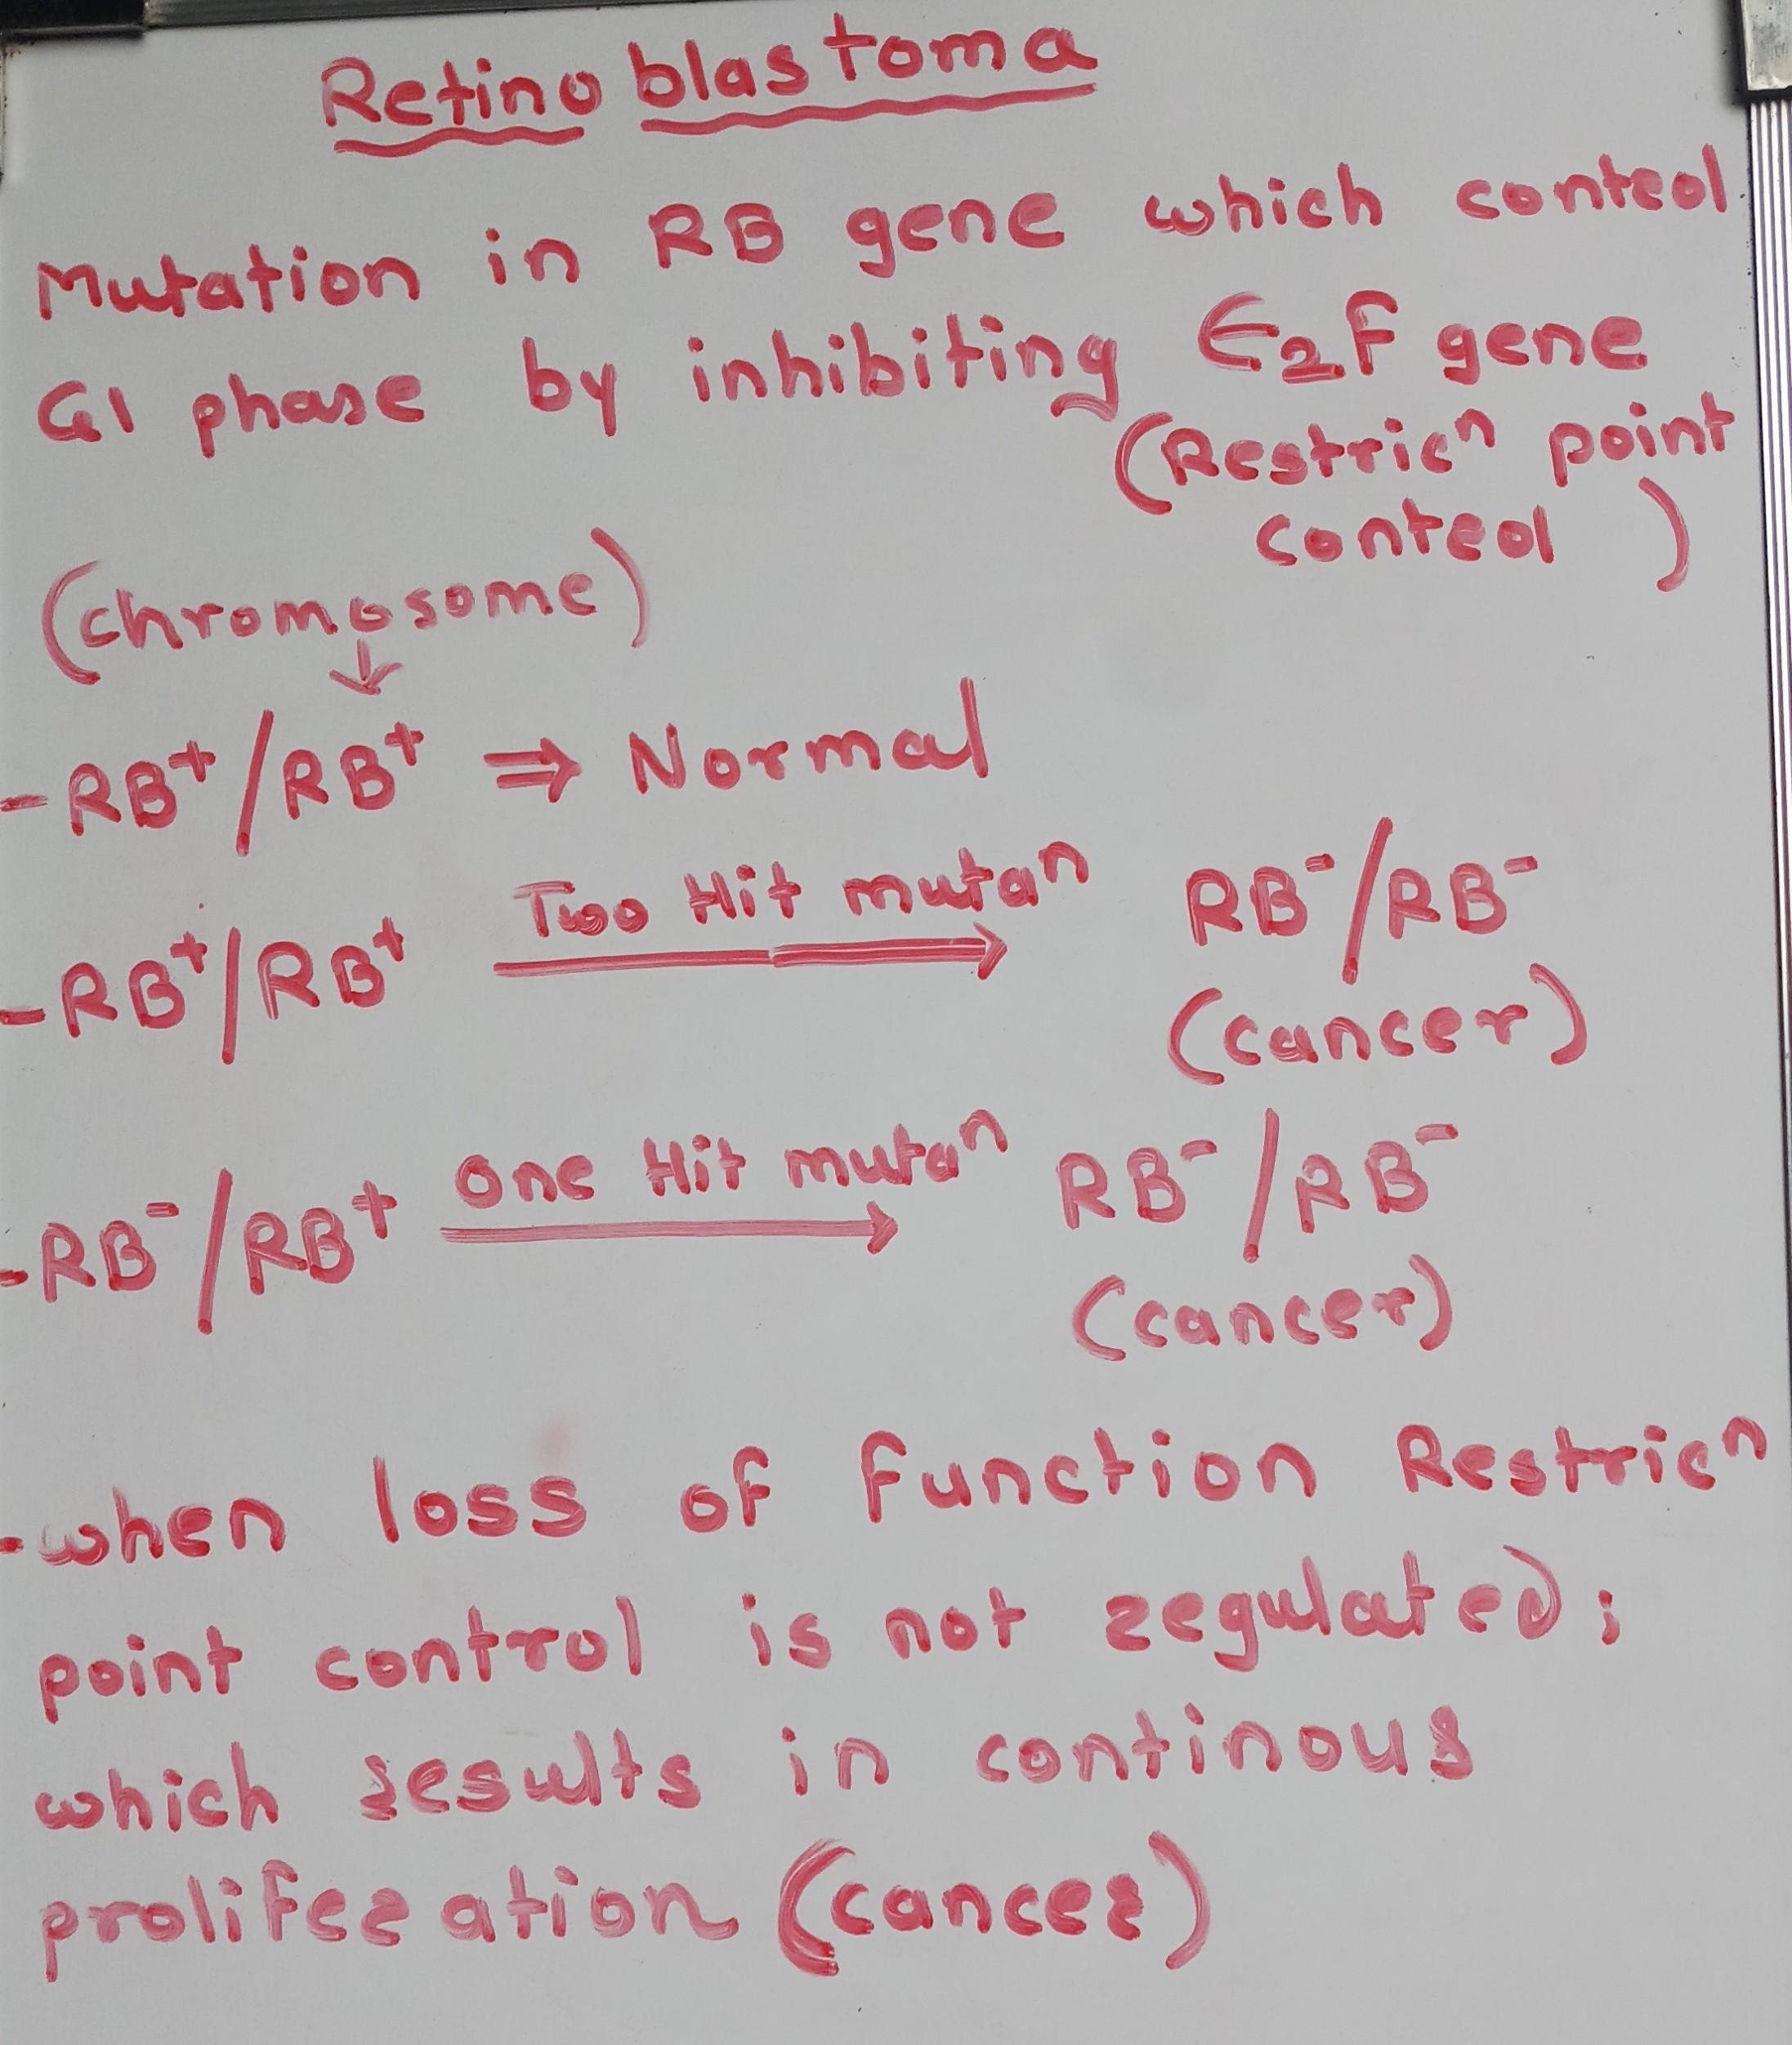 Retinoblastoma
Mutation in RB gene which control
G1 phase by inhibiting E2F gene
(Restricⁿ point
control)
(chromosome)
↓
-RB⁺/RB⁺ ⇒ Normal
-RB⁺/RB⁺ Two Hit mutaⁿ → RB⁻/RB⁻
(cancer)
-RB⁻/RB⁺ One Hit mutaⁿ → RB⁻/RB⁻
(cancer)
-when loss of function Restricⁿ
point control is not regulated;
which results in continous
proliferation (cancer)